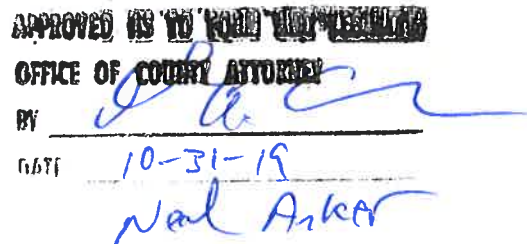 APPROVED AS TO FORM AND
OFFICE OF COUNTY ATTORNEY
BY
DATE 10-31-19
Neal Anker